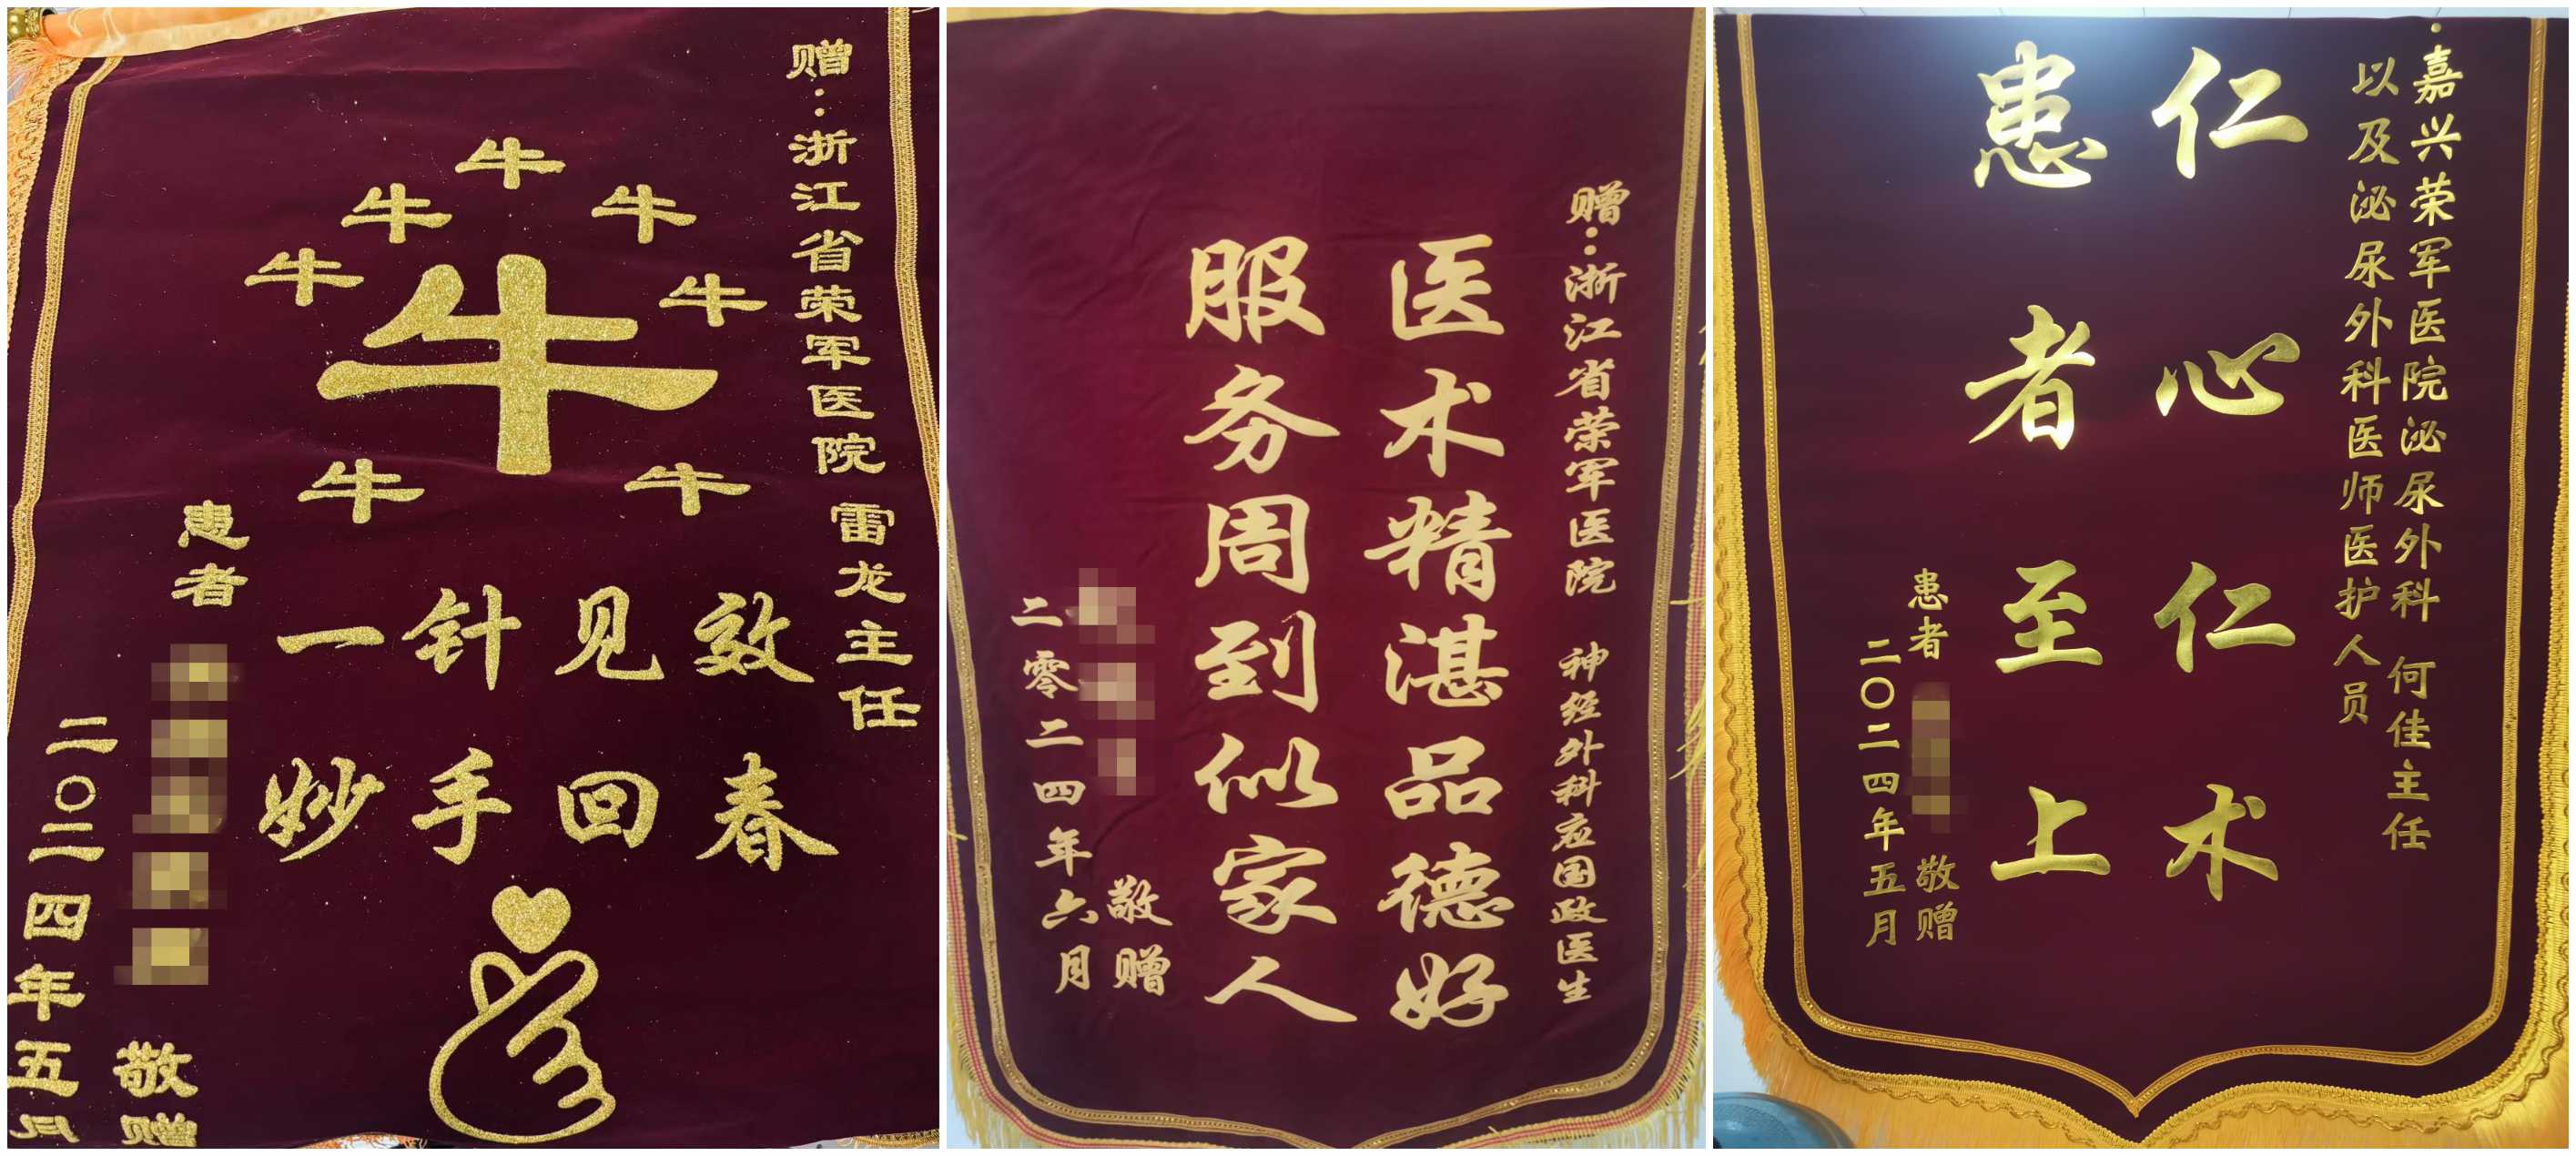 赠：浙江省荣军医院 雷龙主任
牛
牛 牛
牛 牛
牛
牛 牛
一针见效
妙手回春
患者
敬赠
二〇二四年五月
赠：浙江省荣军医院 神经外科应国政医生
医术精湛品德好
服务周到似家人
敬赠
二零二四年六月
嘉兴荣军医院泌尿外科 何佳主任
以及泌尿外科医师医护人员
仁心仁术
患者至上
患者
敬赠
二〇二四年五月